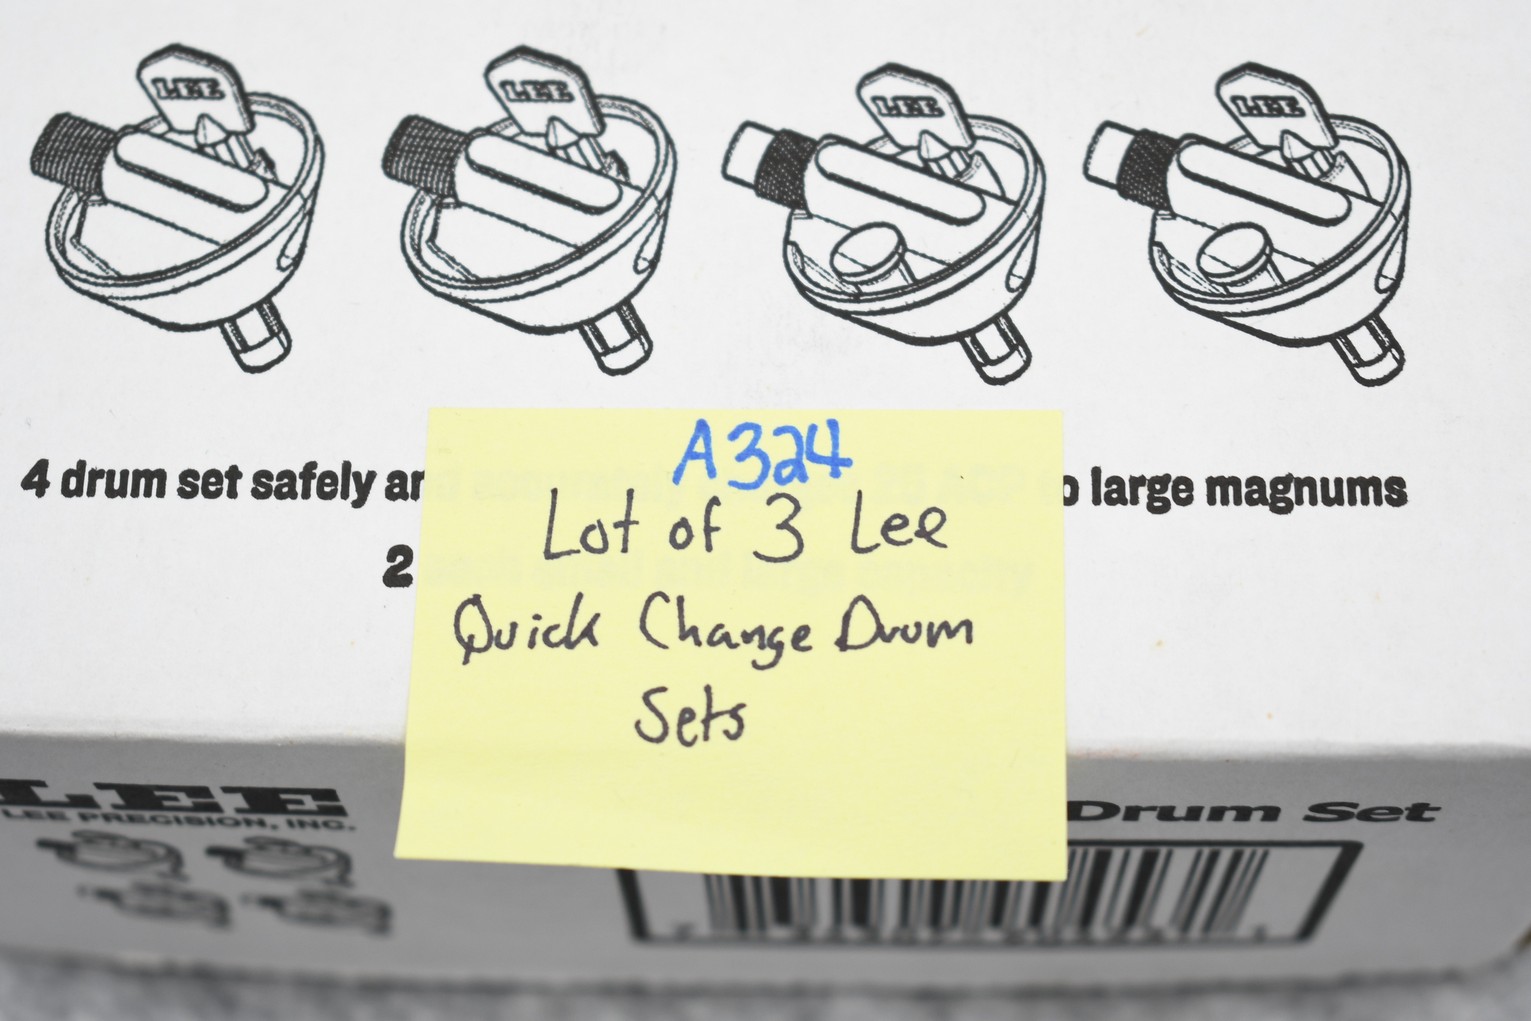 LEE
LEE
LEE
LEE
4 drum set safely an
o large magnums
2
A324
Lot of 3 Lee
Quick Change Drum
Sets
LEE
LEE PRECISION, INC.
Drum Set